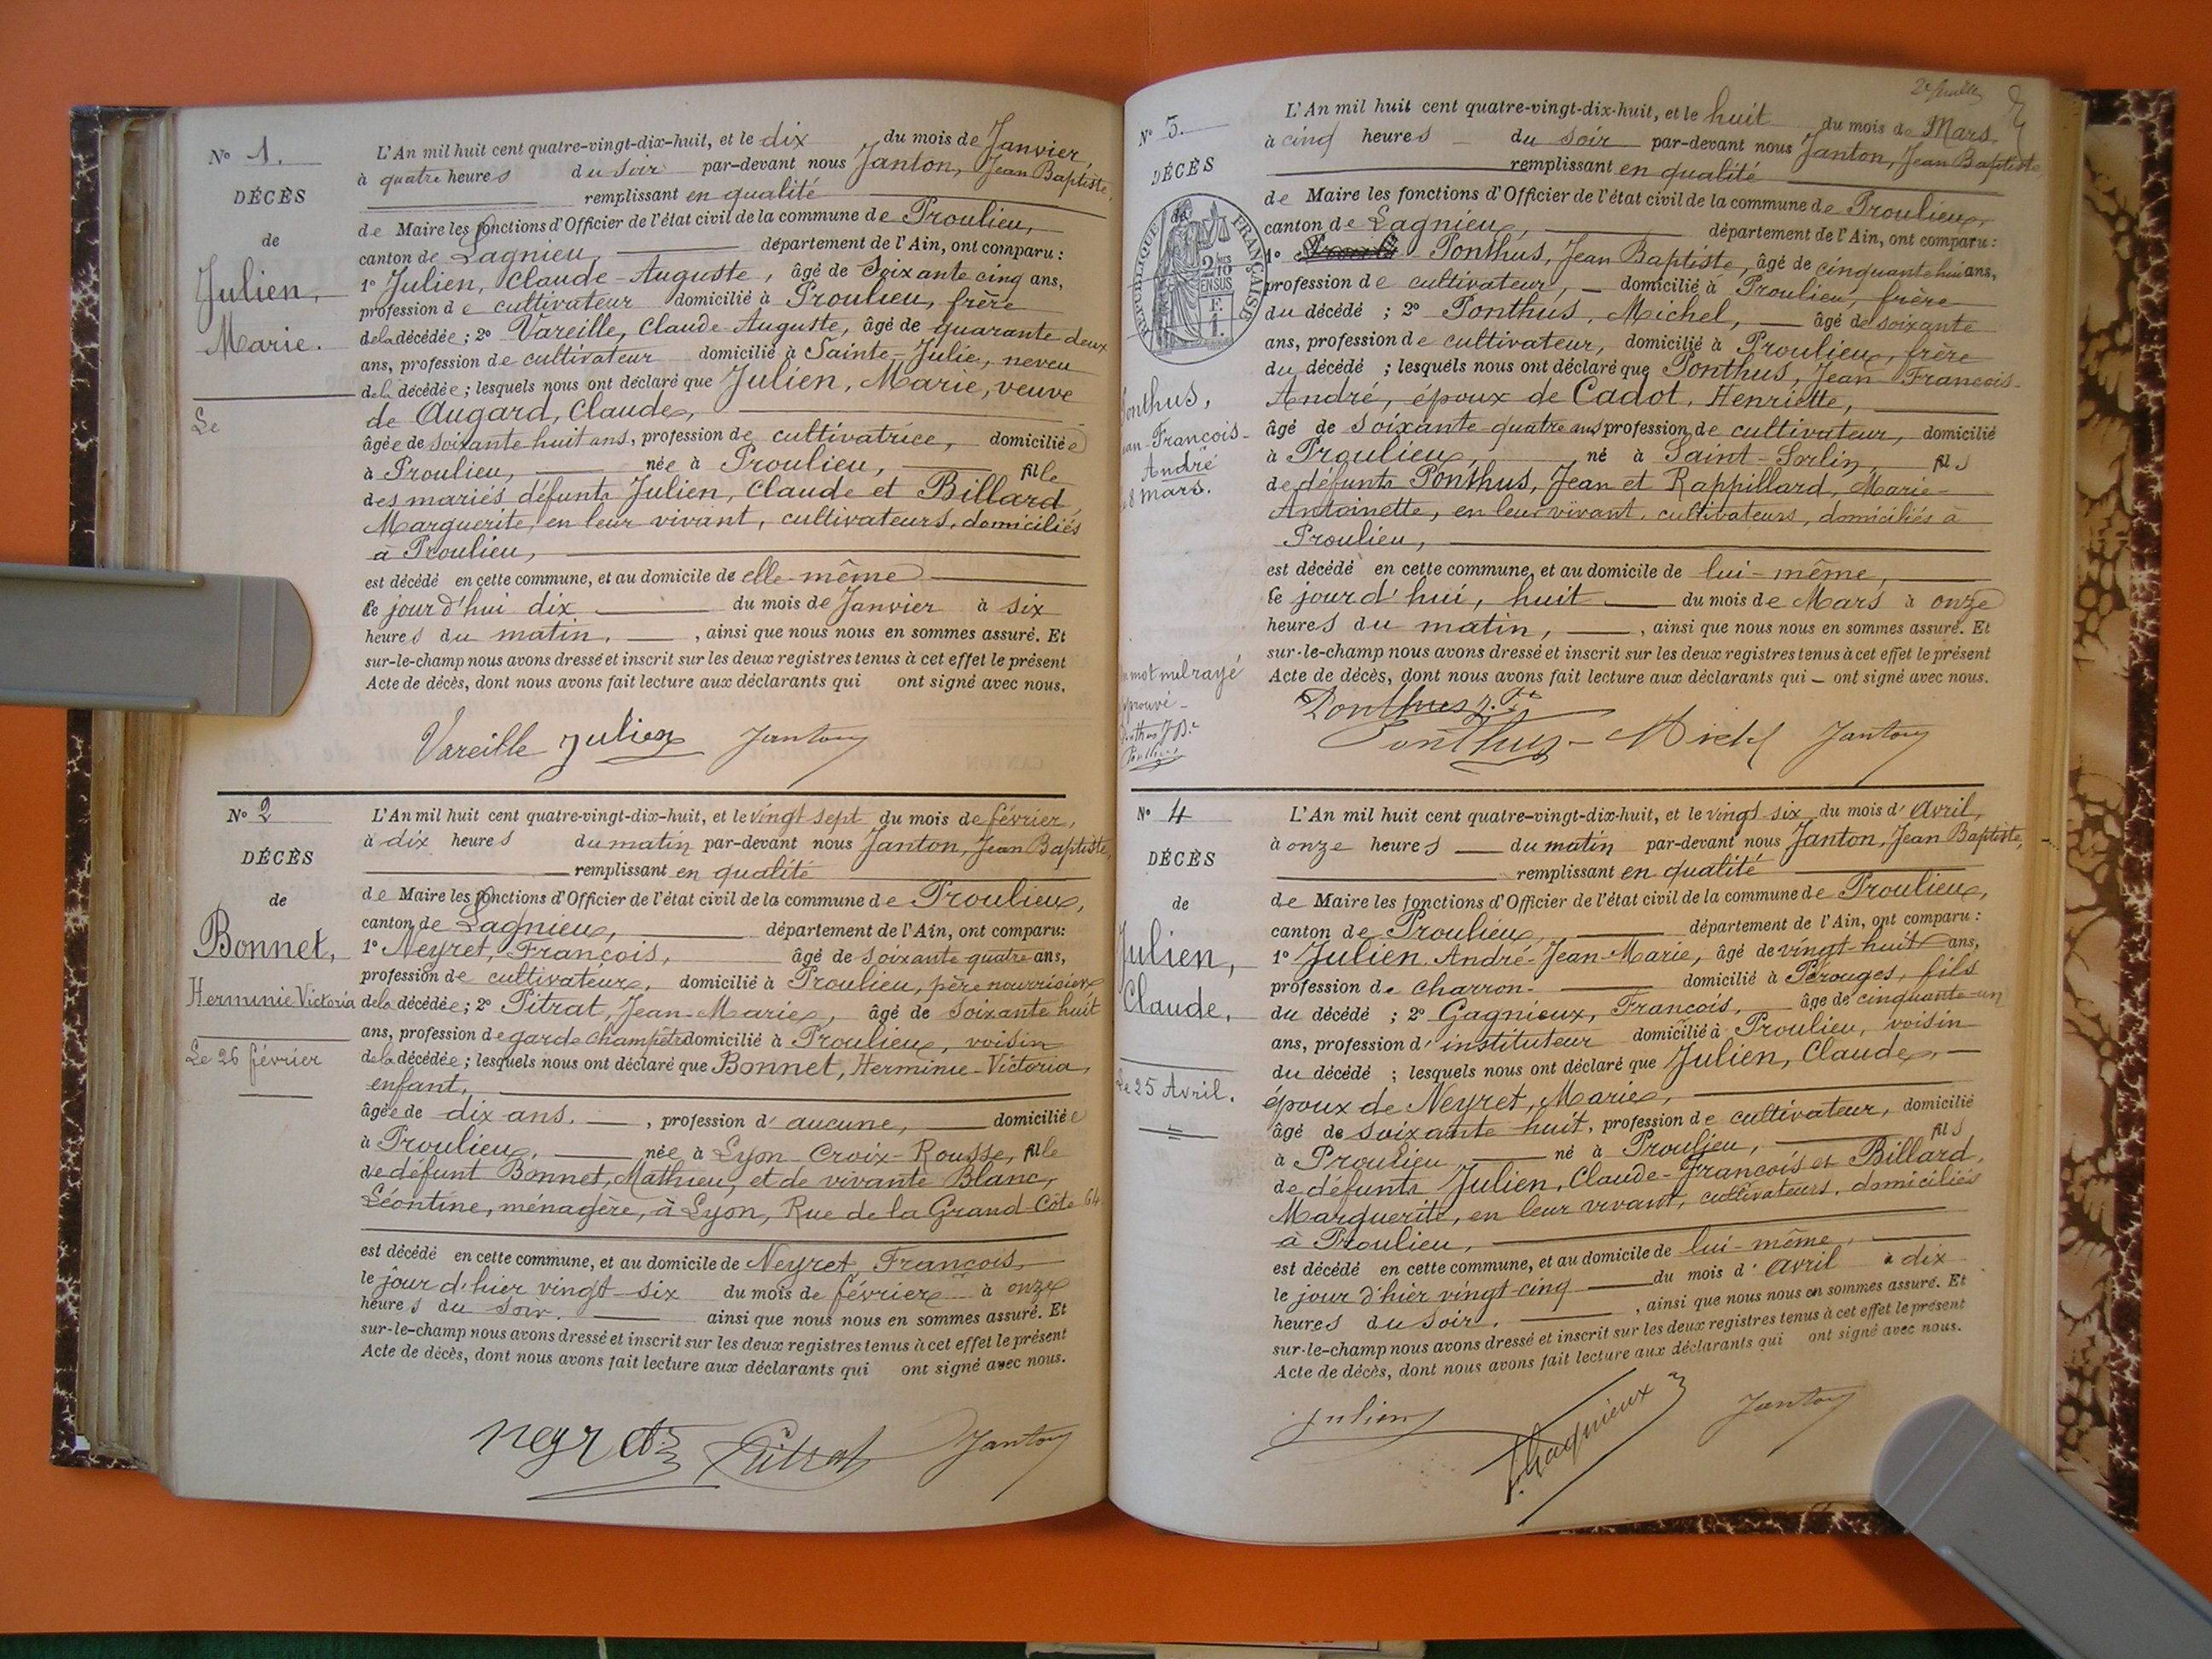 N° 1.
DÉCÈS
de
Julien,
Marie.
Le
L'An mil huit cent quatre-vingt-dix-huit, et le dix du mois de Janvier,
à quatre heures du soir par-devant nous Janton, Jean Baptiste,
remplissant en qualité
de Maire les fonctions d'Officier de l'état civil de la commune de Proulieu,
canton de Lagnieu, département de l'Ain, ont comparu :
1° Julien, Claude-Auguste, âgé de soixante cinq ans,
profession de cultivateur domicilié à Proulieu, frère
de la décédée ; 2° Vareille, Claude-Auguste, âgé de quarante deux
ans, profession de cultivateur domicilié à Sainte-Julie, neveu
de la décédée ; lesquels nous ont déclaré que Julien, Marie, veuve
de Augard, Claude,
âgée de soixante huit ans, profession de cultivatrice, domiciliée
à Proulieu, née à Proulieu, fille
des mariés défunts Julien, Claude et Billard
Marguerite, en leur vivant, cultivateurs, domiciliés
à Proulieu,
est décédé en cette commune, et au domicile de elle-même
le jour d'hui dix du mois de Janvier à six
heures du matin, , ainsi que nous nous en sommes assuré. Et
sur-le-champ nous avons dressé et inscrit sur les deux registres tenus à cet effet le présent
Acte de décès, dont nous avons fait lecture aux déclarants qui ont signé avec nous.
Vareille Julien Janton
N° 2
DÉCÈS
de
Bonnet,
Herminie Victoria
Le 26 février
L'An mil huit cent quatre-vingt-dix-huit, et le vingt sept du mois de février,
à dix heures du matin par-devant nous Janton, Jean Baptiste,
remplissant en qualité
de Maire les fonctions d'Officier de l'état civil de la commune de Proulieu,
canton de Lagnieu, département de l'Ain, ont comparu:
1° Neyret, François, âgé de soixante quatre ans,
profession de cultivateur, domicilié à Proulieu, père nourricier
de la décédée ; 2° Pitrat, Jean-Marie, âgé de soixante huit
ans, profession de garde champêtre domicilié à Proulieu, voisin
de la décédée ; lesquels nous ont déclaré que Bonnet, Herminie-Victoria,
enfant,
âgée de dix ans. , profession d' aucune, domiciliée
à Proulieu, née à Lyon Croix-Rousse, fille
de défunt Bonnet, Mathieu, et de vivante Blanc,
Léontine, ménagère, à Lyon, Rue de la Grand Côte 64
est décédé en cette commune, et au domicile de Neyret, François,
le jour d'hier vingt-six du mois de février à onze
heures du soir. ainsi que nous nous en sommes assuré. Et
sur-le-champ nous avons dressé et inscrit sur les deux registres tenus à cet effet le présent
Acte de décès, dont nous avons fait lecture aux déclarants qui ont signé avec nous.
Neyret Pitrat Janton
2e feuillet
N° 3.
DÉCÈS
de
RÉPUBLIQUE FRANÇAISE
2/10 EN SUS
Ponthus,
Jean-François-
André
8 Mars.
mot nul rayé
L'An mil huit cent quatre-vingt-dix-huit, et le huit du mois de Mars.
à cinq heures du soir par-devant nous Janton, Jean Baptiste
remplissant en qualité
de Maire les fonctions d'Officier de l'état civil de la commune de Proulieu,
canton de Lagnieu, département de l'Ain, ont comparu :
1° Ponthus, Jean Baptiste, âgé de cinquante huit ans,
profession de cultivateur, domicilié à Proulieu, frère
du décédé ; 2° Ponthus, Michel, âgé de soixante
ans, profession de cultivateur, domicilié à Proulieu, frère
du décédé ; lesquels nous ont déclaré que Ponthus, Jean-François-
André, époux de Cadot, Henriette,
âgé de soixante quatre ans profession de cultivateur, domicilié
à Proulieu, né à Saint-Sorlin, fils
de défunts Ponthus, Jean et Rappillard, Marie-
Antoinette, en leur vivant, cultivateurs, domiciliés à
Proulieu,
est décédé en cette commune, et au domicile de lui-même,
le jour d'hui, huit du mois de Mars à onze
heures du matin, , ainsi que nous nous en sommes assuré. Et
sur-le-champ nous avons dressé et inscrit sur les deux registres tenus à cet effet le présent
Acte de décès, dont nous avons fait lecture aux déclarants qui – ont signé avec nous.
Ponthus J. Bte
Ponthus Michel Janton
N° 4
DÉCÈS
de
Julien,
Claude,
Le 25 Avril.
L'An mil huit cent quatre-vingt-dix-huit, et le vingt six du mois d' Avril,
à onze heures du matin par-devant nous Janton, Jean Baptiste,
remplissant en qualité
de Maire les fonctions d'Officier de l'état civil de la commune de Proulieu,
canton de Proulieu, département de l'Ain, ont comparu :
1° Julien, André-Jean-Marie, âgé de vingt-huit ans,
profession de charron. domicilié à Pérouges, fils
du décédé ; 2° Gagnieux, François, âge de cinquante-un
ans, profession d' instituteur domicilié à Proulieu, voisin
du décédé ; lesquels nous ont déclaré que Julien, Claude,
époux de Neyret, Marie,
âgé de soixante huit, profession de cultivateur, domicilié
à Proulieu né à Proulieu, fils
de défunts Julien, Claude-François et Billard,
Marguerite, en leur vivant, cultivateurs, domiciliés
à Proulieu,
est décédé en cette commune, et au domicile de lui-même,
le jour d'hier vingt-cinq du mois d' avril à dix
heures du soir. , ainsi que nous nous en sommes assuré. Et
sur-le-champ nous avons dressé et inscrit sur les deux registres tenus à cet effet le présent
Acte de décès, dont nous avons fait lecture aux déclarants qui ont signé avec nous.
Julien F. Gagnieux Janton